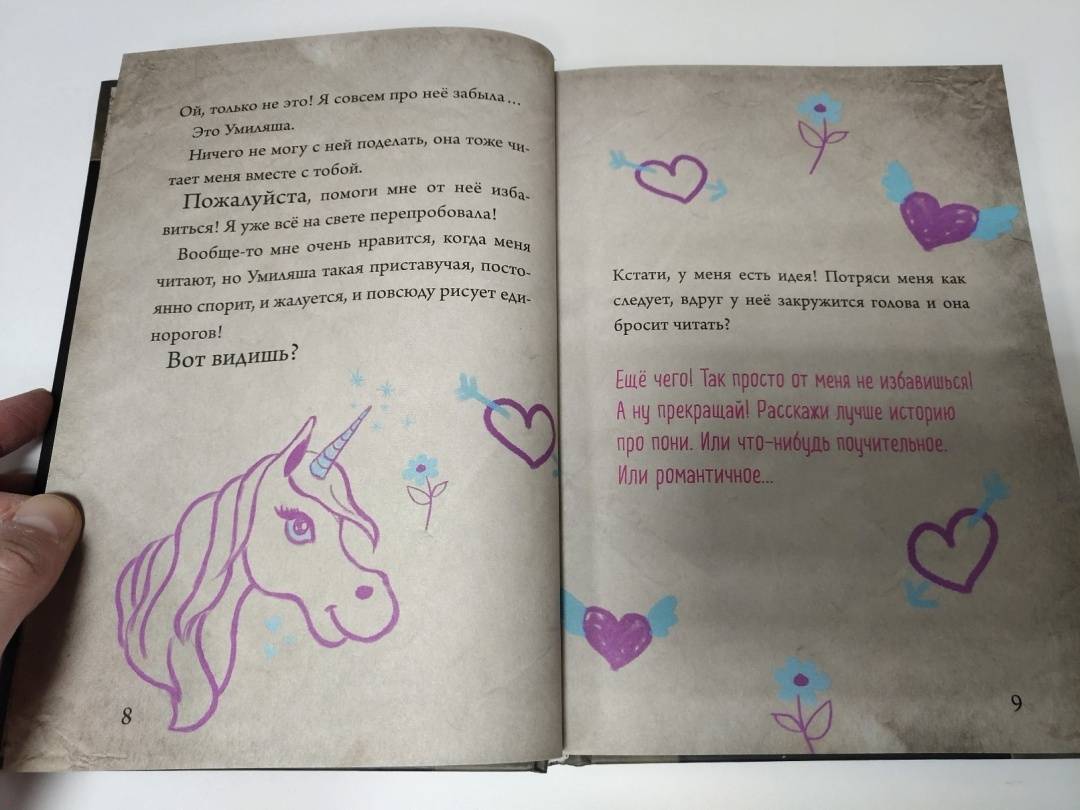 Ой, только не это! Я совсем про неё забыла...
Это Умиляша.
Ничего не могу с ней поделать, она тоже чи-
тает меня вместе с тобой.
Пожалуйста, помоги мне от неё изба-
виться! Я уже всё на свете перепробовала!
Вообще-то мне очень нравится, когда меня
читают, но Умиляша такая приставучая, посто-
янно спорит, и жалуется, и повсюду рисует еди-
норогов!
Вот видишь?
8
Кстати, у меня есть идея! Потряси меня как
следует, вдруг у неё закружится голова и она
бросит читать?
Ещё чего! Так просто от меня не избавишься!
А ну прекращай! Расскажи лучше историю
про пони. Или что-нибудь поучительное.
Или романтичное...
9